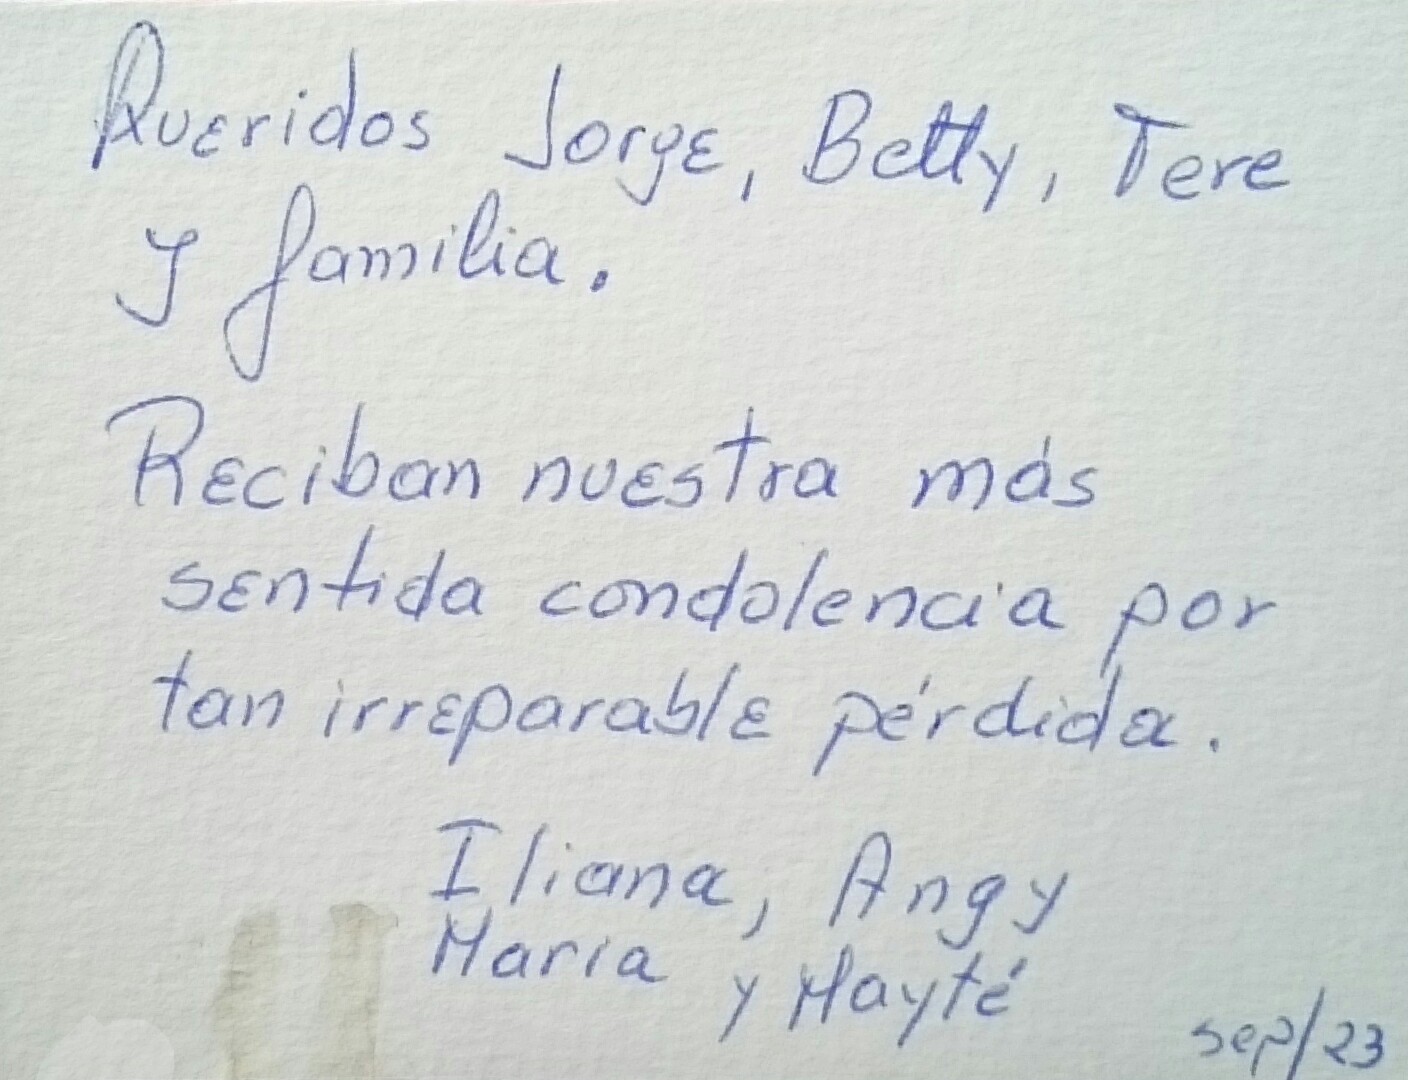 Queridos Jorge, Betty, Tere
y familia.
Reciban nuestra más
sentida condolencia por
tan irreparable pérdida.
Iliana, Angy
Maria y Mayté
sep/23